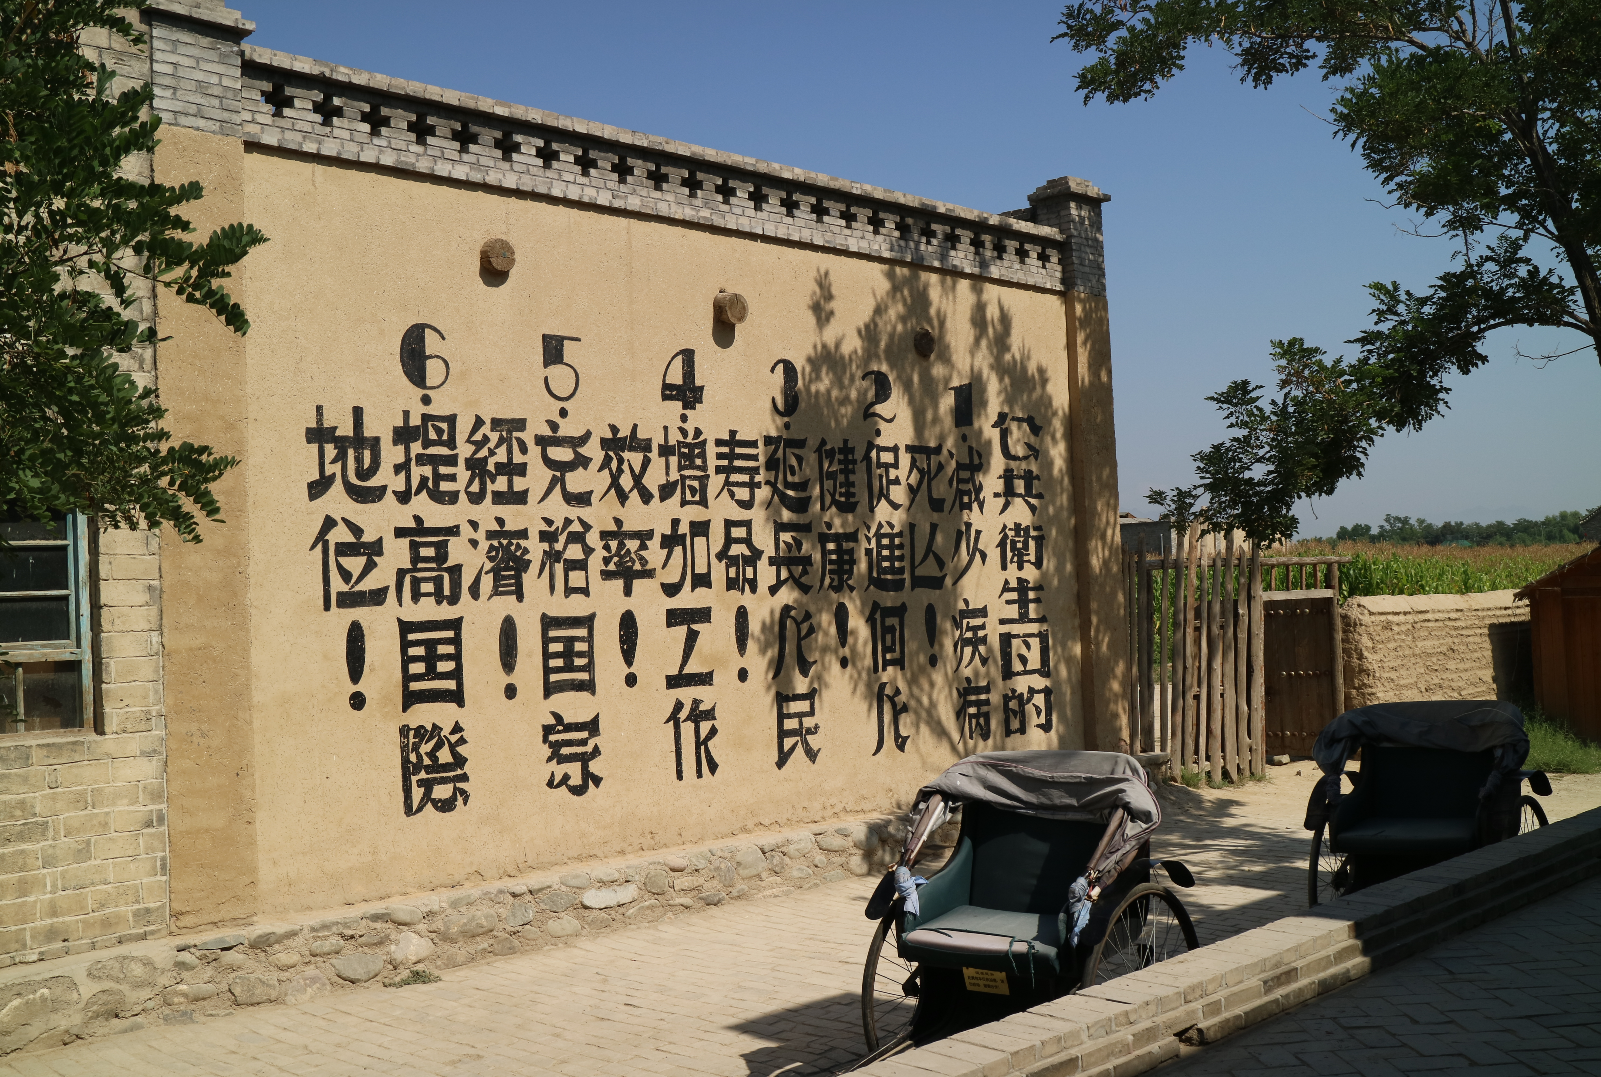 公共衛生目的
1.減少疾病
死亡！
2.促進個人
健康！
3.延長人民
寿命！
4.增加工作
效率！
5.充裕国家
經濟！
6.提高国際
地位！